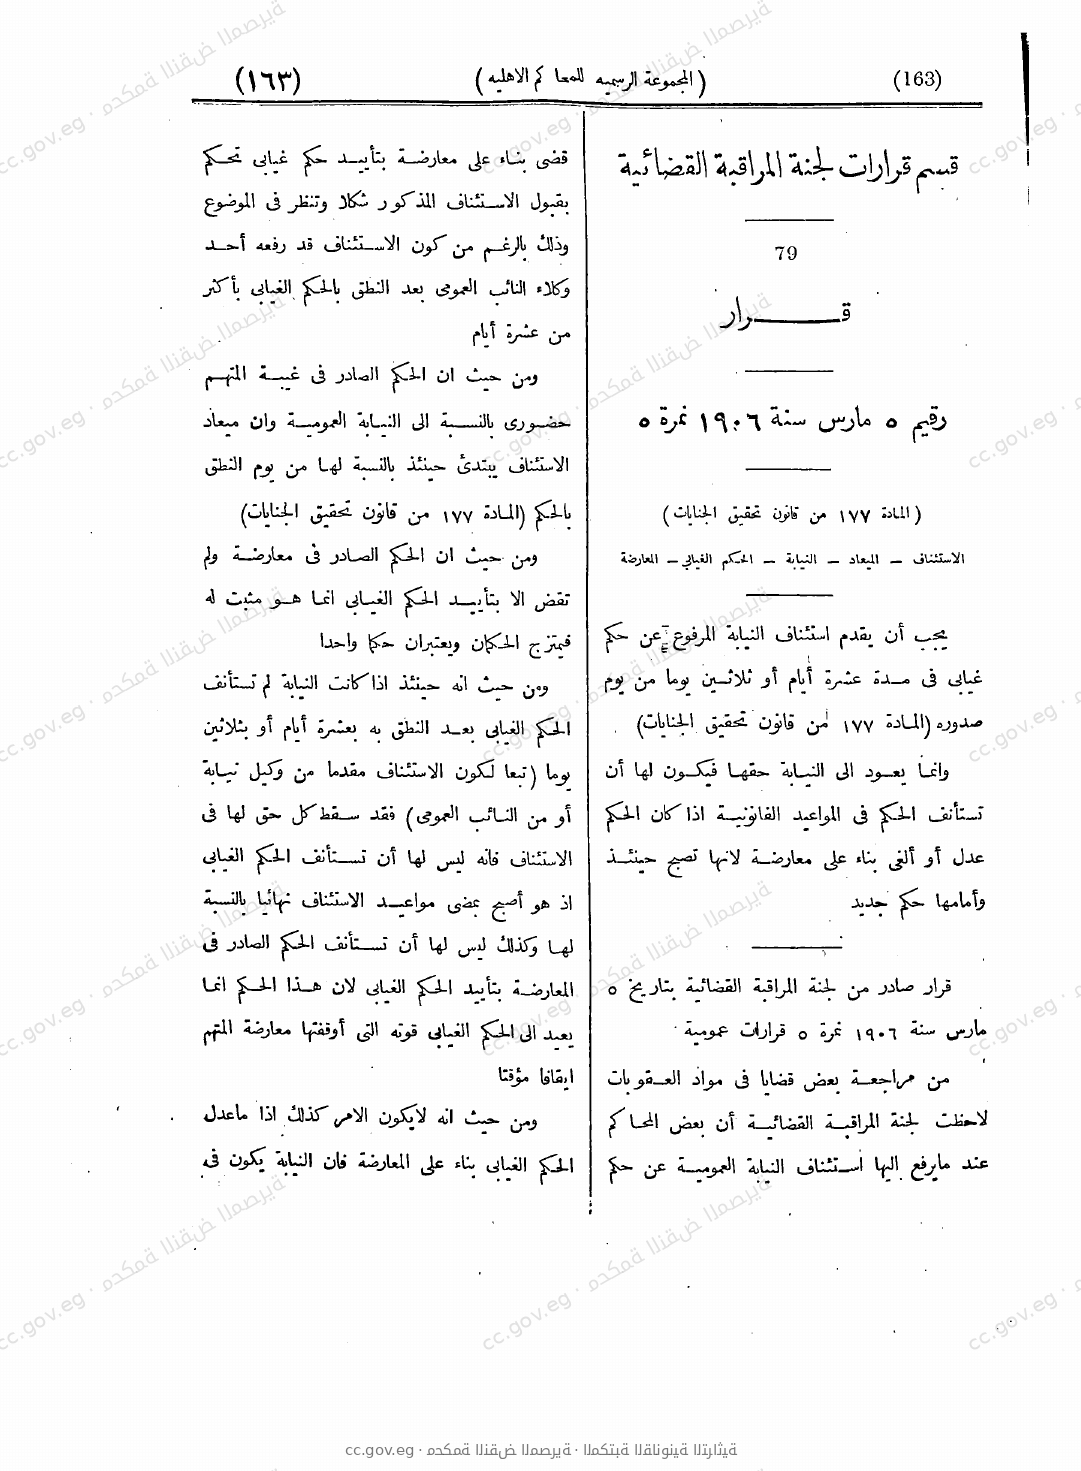 (163)
(المجموعة الرسميه للمحاكم الاهليه)
(١٦٣)
قسم قرارات لجنة المراقبة القضائية
79
قـــــــــرار
رقيم ٥ مارس سنة ١٩٠٦ نمرة ٥
(المادة ١٧٧ من قانون تحقيق الجنايات)
الاستئناف – الميعاد – النيابة – الحكم الغيابي – المعارضة
يجب أن يقدم استئناف النيابة المرفوع عن حكم
غيابى فى مدة عشرة أيام أو ثلاثين يوما من يوم
صدوره (المادة ١٧٧ من قانون تحقيق الجنايات)
وانما يعود الى النيابة حقها فيكون لها أن
تستأنف الحكم فى المواعيد القانونية اذا كان الحكم
عدل أو ألغى بناء على معارضة لانها تصبح حينئذ
وأمامها حكم جديد
قرار صادر من لجنة المراقبة القضائية بتاريخ ٥
مارس سنة ١٩٠٦ نمرة ٥ قرارات عمومية
من مراجعة بعض قضايا فى مواد العقوبات
لاحظت لجنة المراقبة القضائية أن بعض المحاكم
عند مايرفع اليها استئناف النيابة العمومية عن حكم
قضى بناء على معارضة بتأييد حكم غيابى تحكم
بقبول الاستئناف المذكور شكلا وتنظر فى الموضوع
وذلك بالرغم من كون الاستئناف قد رفعه أحد
وكلاء النائب العمومى بعد النطق بالحكم الغيابى بأكثر
من عشرة أيام
ومن حيث ان الحكم الصادر فى غيبة المتهم
حضورى بالنسبة الى النيابة العمومية وان ميعاد
الاستئناف يبتدئ حينئذ بالنسبة لها من يوم النطق
بالحكم (المادة ١٧٧ من قانون تحقيق الجنايات)
ومن حيث ان الحكم الصادر فى معارضة ولم
تقض الا بتأييد الحكم الغيابى انما هو مثبت له
فيمتزج الحكمان ويعتبران حكما واحدا
ومن حيث انه حينئذ اذا كانت النيابة لم تستأنف
الحكم الغيابى بعد النطق به بعشرة أيام أو بثلاثين
يوما (تبعا لكون الاستئناف مقدما من وكيل نيابة
أو من النائب العمومى) فقد سقط كل حق لها فى
الاستئناف فانه ليس لها أن تستأنف الحكم الغيابى
اذ هو أصبح بمضى مواعيد الاستئناف نهائيا بالنسبة
لها وكذلك ليس لها أن تستأنف الحكم الصادر فى
المعارضة بتأييد الحكم الغيابى لان هذا الحكم انما
يعيد الى الحكم الغيابى قوته التى أوقفتها معارضة المتهم
ايقافا مؤقتا
ومن حيث انه لايكون الامر كذلك اذا ماعدل
الحكم الغيابى بناء على المعارضة فان النيابة يكون فى
cc.gov.eg · محكمة النقض المصرية · المكتبة القانونية التراثية